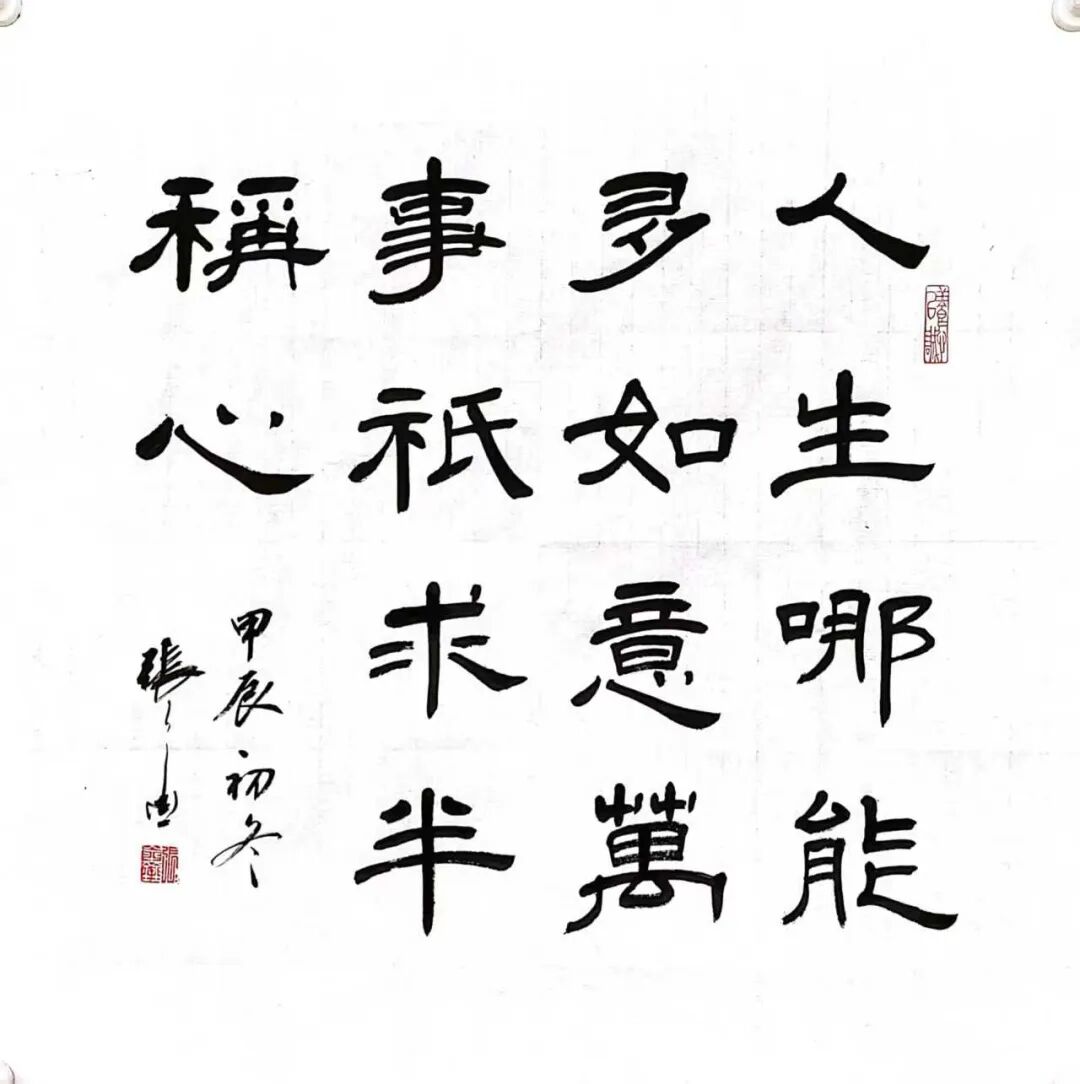 人生哪能
多如意萬
事祇求半
稱心
甲辰初冬
張